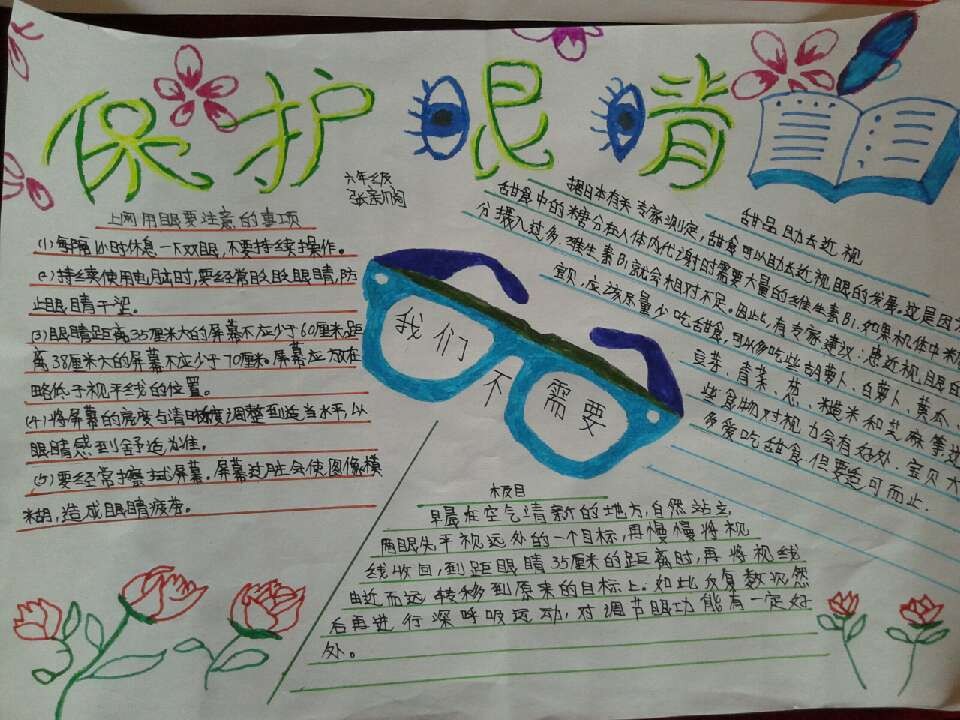 保护眼睛
六年级
上网用眼要注意的事项
(1)每隔小时休息一下双眼,不要持续操作。
(2)持续使用电脑时,要经常眨眨眼睛,防
止眼睛干涩。
(3)眼睛距离35厘米大的屏幕不应少于60厘米,距
离38厘米大的屏幕不应少于70厘米。屏幕应放在
略低于视平线的位置。
(4)将屏幕的亮度与清晰度调整到适当水平,以
眼睛感到舒适为准。
(5)要经常擦拭屏幕。屏幕过脏会使图像模
糊,造成眼睛疲劳。
我们
不
需要
甜品助去近视
据日本有关专家测定,甜食可以助去近视眼的发展,这是因为
甜食中的糖分在人体内代谢时需要大量的维生素B1,如果机体中
分摄入过多,维生素B1就会相对不足。因此,有专家建议:患近视眼的
宝贝,应该尽量少吃甜食,可以多吃些胡萝卜、白萝卜、黄瓜、
豆芽、青菜、葱、糙米和芝麻等,这
些食物对视力会有好处,宝贝大
多爱吃甜食,但要适可而止.
极目
早晨在空气清新的地方,自然站立,
两眼先平视远处的一个目标,再慢慢将视
线收回,到距眼睛35厘米的距离时,再将视线
由近而远转移到原来的目标上。如此反复数次然
后再进行深呼吸运动,对调节眼功能有一定好
处。